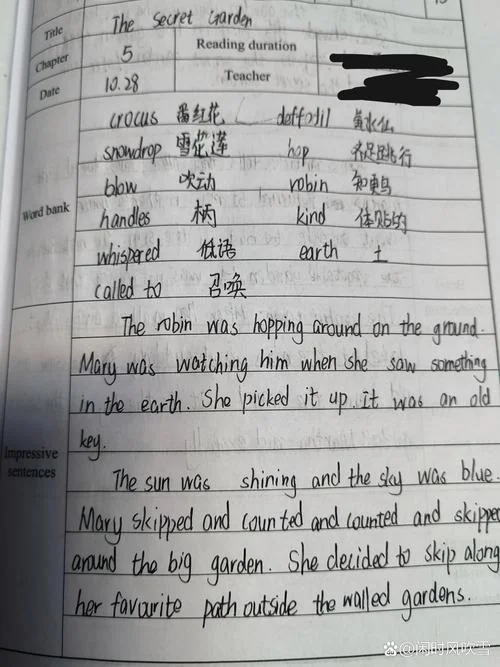 Title The Secret Garden
Chapter 5 Reading duration
Date 10.28 Teacher
Word bank
crocus 番红花 deffodil 黄水仙
snowdrop 雪花莲 hop 齐足跳行
blow 吹动 robin 知更鸟
handles 柄 kind 体贴的
whispered 低语 earth 土
called to 召唤
Impressive sentences
The robin was hopping around on the ground.
Mary was watching him when she saw something
in the earth. She picked it up. It was an old
key.
The sun was shining and the sky was blue.
Mary skipped and counted and counted and skipped
around the big garden. She decided to skip along
her favourite path outside the walled gardens.
@闲时风吹雪